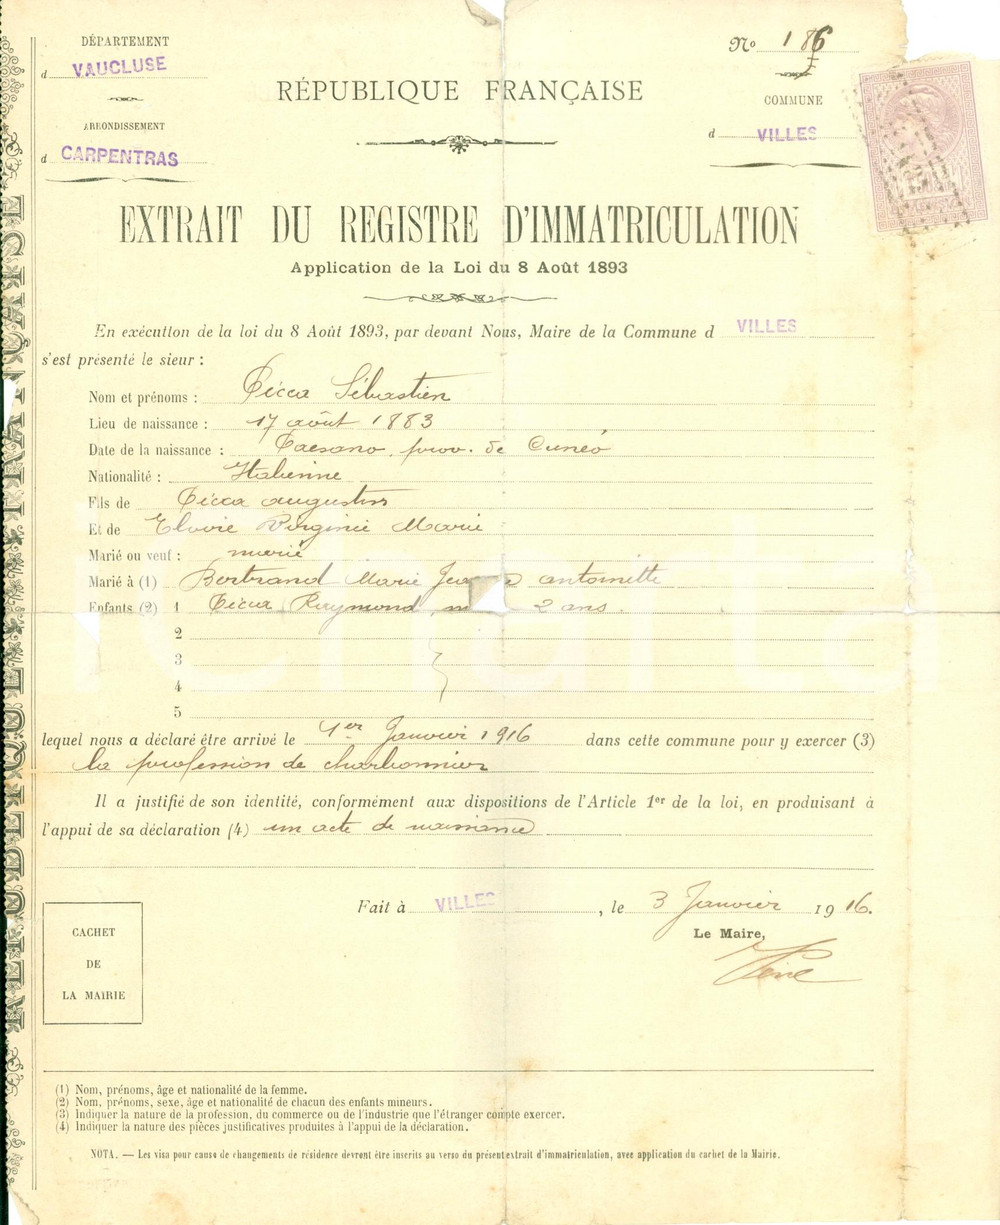 DÉPARTEMENT
d VAUCLUSE
ARRONDISSEMENT
d CARPENTRAS
RÉPUBLIQUE FRANÇAISE
No 186
COMMUNE
d VILLES
EXTRAIT DU REGISTRE D'IMMATRICULATION
Application de la Loi du 8 Août 1893
En exécution de la loi du 8 Août 1893, par devant Nous, Maire de la Commune d VILLES
s'est présenté le sieur :
Nom et prénoms : Sébastien
Lieu de naissance : 17 août 1883
Date de la naissance : Paesano, prov. de Cunéo
Nationalité : Italienne
Fils de augustin
Et de Virginie Marie
Marié ou veuf : marié
Marié à (1) Bertrand Marie antoinette
Enfants (2) 1 Raymond 2 ans.
2
3
4
5
lequel nous a déclaré être arrivé le 1er Janvier 1916 dans cette commune pour y exercer (3)
la profession de charbonnier
Il a justifié de son identité, conformément aux dispositions de l'Article 1er de la loi, en produisant à
l'appui de sa déclaration (4) un acte de naissance
Fait à VILLES, le 3 Janvier 1916.
Le Maire,
CACHET
DE
LA MAIRIE
(1) Nom, prénoms, âge et nationalité de la femme.
(2) Nom, prénoms, sexe, âge et nationalité de chacun des enfants mineurs.
(3) Indiquer la nature de la profession, du commerce ou de l'industrie que l'étranger compte exercer.
(4) Indiquer la nature des pièces justificatives produites à l'appui de la déclaration.
NOTA. — Les visa pour cause de changements de résidence devront être inscrits au verso du présent extrait d'immatriculation, avec application du cachet de la Mairie.